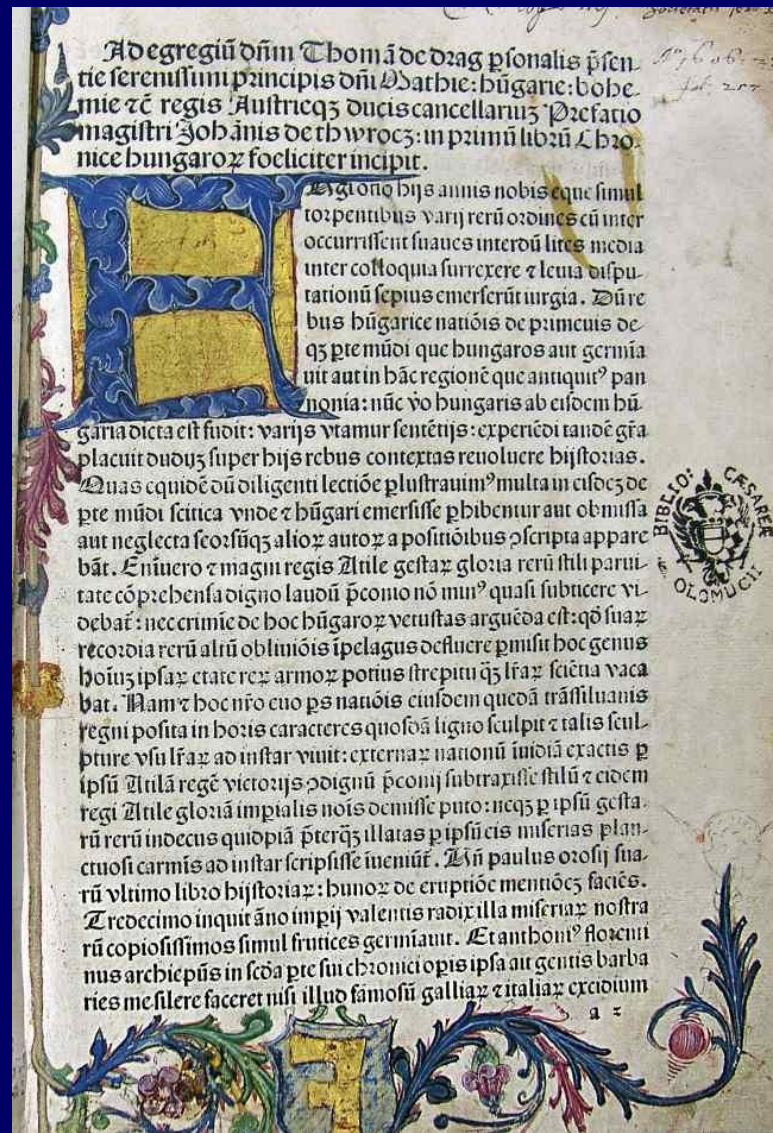 Ad egregiū dñm Thomā de drag ꝑsonalis p̄sen-
tie serenissimi principis dñi Mathie: hūgarie: bohe-
mie ⁊c̄ regis Austrieqꝫ ducis cancellariuꝫ Prefatio
magistri Johānis de thwrocꝫ: in primū librū Chro-
nice hungaroꝝ foeliciter incipit.
gi otio hijs annis nobis eque simul
torpentibus varij rerū ordines cū inter
occurrissent suaues interdū lites media
inter colloquia surrexere ⁊ leuia dispu-
tationū sepius emerserūt iurgia. Dū re
bus hūgarice natiōis de primeuis de-
qꝫ ꝑte mūdi que hungaros aut germīa
uit aut in hāc regionē que antiquitꝰ pan
nonia: nūc vo hungaris ab eisdem hū-
garia dicta est fudit: varijs vtamur sentētijs: experiēdi tandē gr̄a
placuit duduꝫ super hijs rebus contextas reuoluere hijstorias.
Quas equidē dū diligenti lectiōe ꝑlustrauimꝰ multa in eisdeꝫ de
ꝑte mūdi scitica vnde ⁊ hūgari emersisse ꝑhibentur aut obmissa
aut neglecta seorsūqꝫ alioꝝ autoꝝ a positiōibus ꝯscripta appare
bāt. Enīuero ⁊ magni regis Atile gestaꝝ gloria rerū stili parui-
tate cōprehensa digno laudū p̄conio nō minꝰ quasi subticere vi-
debat̄: nec crimīe de hoc hūgaroꝝ vetustas arguēda est: qd̄ suaꝝ
recordia rerū altū obliuiōis īpelagus defluere ꝑmisit hoc genus
hoīuꝫ ipsaꝝ etate reꝝ armoꝝ potius strepitu qꝫ lr̄aꝝ sciētia vaca
bat. Nam ⁊ hoc nr̄o euo ꝑs natiōis eiusdem quedā trāssiluanis
regni posita in horis caracteres quosdā ligno sculpit ⁊ talis scul-
pture vsu lr̄aꝝ ad instar viuit: externaꝝ nationū īuidiā exactis ꝑ
ipsū Atilā regē victorijs ꝯdignū p̄conij subtraxisse stilū ⁊ eidem
regi Atile gloriā imꝑialis nois demisse puto: neqꝫ ꝑ ipsū gesta-
rū rerū indecus quidpiā p̄terqꝫ illatas ꝑ ipsū eis miserias plan-
ctuosi carmīs ad instar scripsisse īueniūt̄. Vn̄ paulus orosij sua-
rū vltimo libro hijstoriaꝝ: hunoꝝ de eruptiōe mentiōeꝫ faciēs.
Tredecimo inquit āno imꝑij valentis radix illa miseriaꝝ nostra
rū copiosissimos simul frutices germīauit. Et anthoniꝰ florenti
nus archiep̄us in scd̄a ꝑte sui chronici oꝑis ipsa ait gentis barba
ries me silere faceret nisi illud famosū galliaꝝ ⁊ italiaꝝ excidium
a 2
BIBLIO: CÆSAREÆ
OLOMUCII